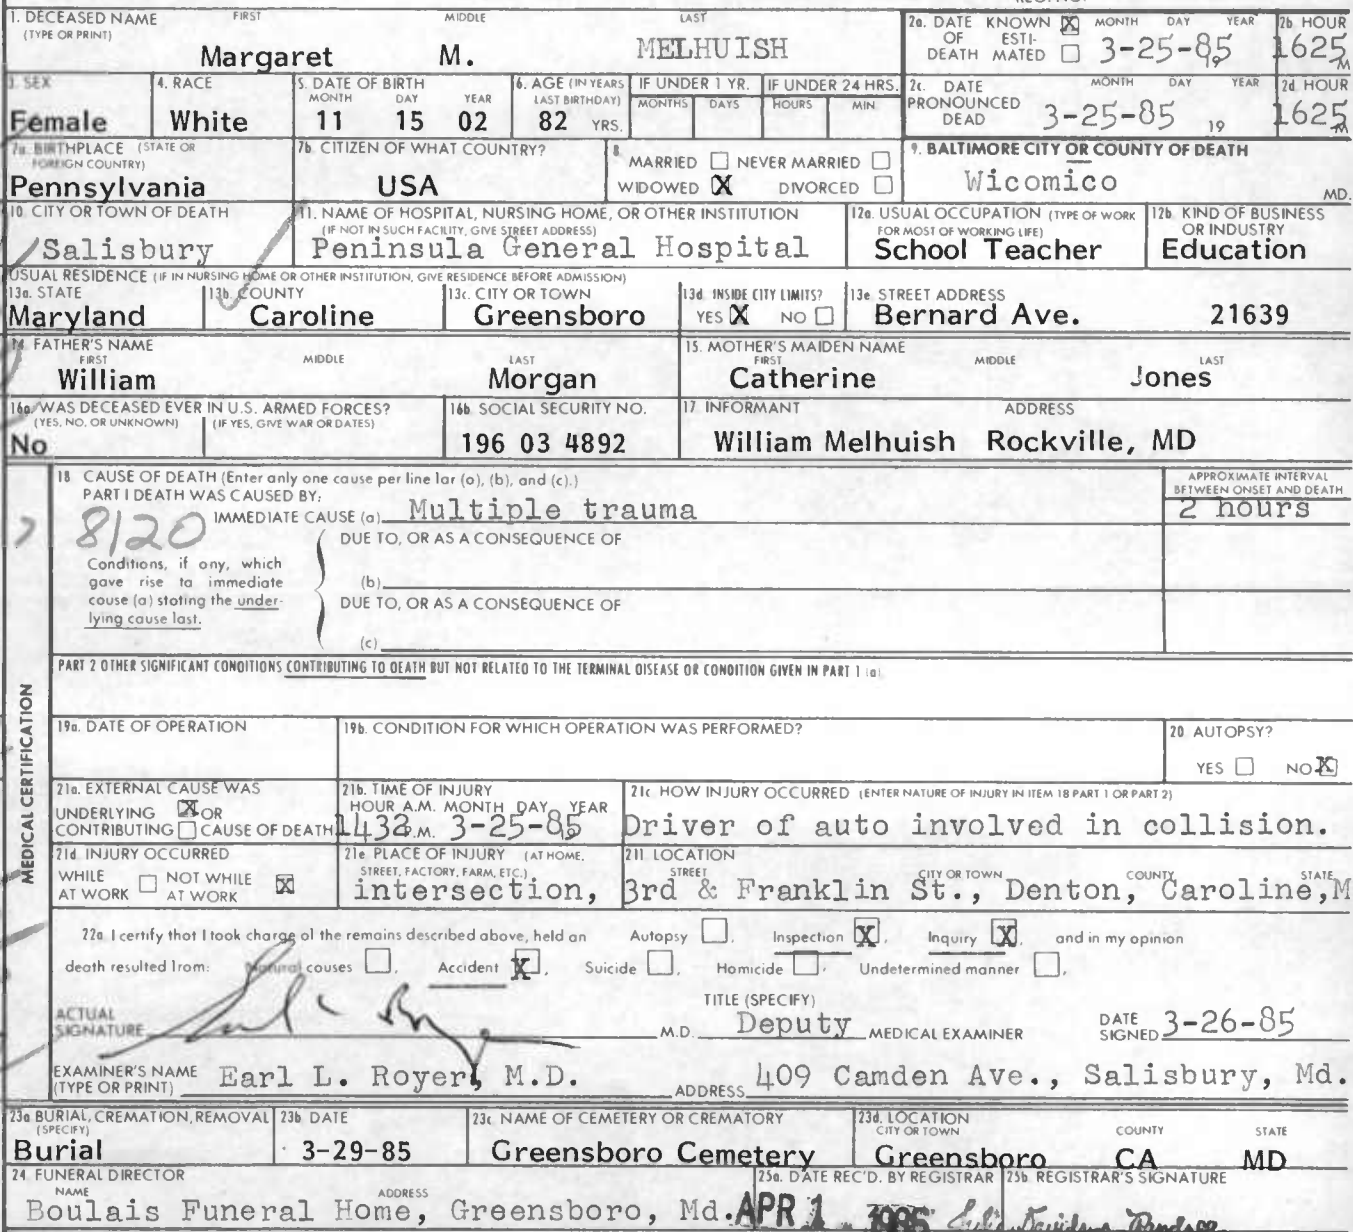 1. DECEASED NAME FIRST MIDDLE LAST
(TYPE OR PRINT)
Margaret M. MELHUISH
2a. DATE OF DEATH KNOWN X ESTIMATED MONTH DAY YEAR 2b. HOUR
3-25-85 19 1625 M
3. SEX 4. RACE 5. DATE OF BIRTH 6. AGE (IN YEARS IF UNDER 1 YR. IF UNDER 24 HRS.
MONTH DAY YEAR LAST BIRTHDAY) MONTHS DAYS HOURS MIN.
Female White 11 15 02 82 YRS.
2c. DATE PRONOUNCED DEAD MONTH DAY YEAR 2d. HOUR
3-25-85 19 1625 M
7a. BIRTHPLACE (STATE OR FOREIGN COUNTRY) 7b. CITIZEN OF WHAT COUNTRY?
Pennsylvania USA
8. MARRIED NEVER MARRIED
WIDOWED X DIVORCED
9. BALTIMORE CITY OR COUNTY OF DEATH
Wicomico MD.
10. CITY OR TOWN OF DEATH
Salisbury
11. NAME OF HOSPITAL, NURSING HOME, OR OTHER INSTITUTION
(IF NOT IN SUCH FACILITY, GIVE STREET ADDRESS)
Peninsula General Hospital
12a. USUAL OCCUPATION (TYPE OF WORK FOR MOST OF WORKING LIFE)
School Teacher
12b. KIND OF BUSINESS OR INDUSTRY
Education
USUAL RESIDENCE (IF IN NURSING HOME OR OTHER INSTITUTION, GIVE RESIDENCE BEFORE ADMISSION)
13a. STATE 13b. COUNTY 13c. CITY OR TOWN 13d. INSIDE CITY LIMITS? 13e. STREET ADDRESS
Maryland Caroline Greensboro YES X NO Bernard Ave. 21639
14. FATHER'S NAME FIRST MIDDLE LAST
William Morgan
15. MOTHER'S MAIDEN NAME FIRST MIDDLE LAST
Catherine Jones
16a. WAS DECEASED EVER IN U.S. ARMED FORCES?
(YES, NO, OR UNKNOWN) (IF YES, GIVE WAR OR DATES)
No
16b. SOCIAL SECURITY NO.
196 03 4892
17. INFORMANT ADDRESS
William Melhuish Rockville, MD
MEDICAL CERTIFICATION
18. CAUSE OF DEATH (Enter only one cause per line for (a), (b), and (c).)
PART I DEATH WAS CAUSED BY:
APPROXIMATE INTERVAL BETWEEN ONSET AND DEATH
IMMEDIATE CAUSE (a) Multiple trauma 2 hours
8120
DUE TO, OR AS A CONSEQUENCE OF
Conditions, if any, which
gave rise to immediate (b)
cause (a) stating the under- DUE TO, OR AS A CONSEQUENCE OF
lying cause last.
(c)
PART 2 OTHER SIGNIFICANT CONDITIONS CONTRIBUTING TO DEATH BUT NOT RELATED TO THE TERMINAL DISEASE OR CONDITION GIVEN IN PART 1 (a)
19a. DATE OF OPERATION 19b. CONDITION FOR WHICH OPERATION WAS PERFORMED? 20. AUTOPSY?
YES NO X
21a. EXTERNAL CAUSE WAS
UNDERLYING X OR
CONTRIBUTING CAUSE OF DEATH
21b. TIME OF INJURY
HOUR A.M. MONTH DAY YEAR
1432 P.M. 3-25-85
21c. HOW INJURY OCCURRED (ENTER NATURE OF INJURY IN ITEM 18 PART 1 OR PART 2)
Driver of auto involved in collision.
21d. INJURY OCCURRED
WHILE AT WORK NOT WHILE AT WORK X
21e. PLACE OF INJURY (AT HOME, STREET, FACTORY, FARM, ETC.)
intersection,
21f. LOCATION
STREET CITY OR TOWN COUNTY STATE
3rd & Franklin St., Denton, Caroline, M
22a. I certify that I took charge of the remains described above, held an Autopsy , Inspection X , Inquiry X , and in my opinion
death resulted from: Natural causes , Accident X , Suicide , Homicide , Undetermined manner ,
ACTUAL SIGNATURE M.D. TITLE (SPECIFY) Deputy MEDICAL EXAMINER DATE SIGNED 3-26-85
EXAMINER'S NAME (TYPE OR PRINT) Earl L. Royer, M.D. ADDRESS 409 Camden Ave., Salisbury, Md.
23a. BURIAL, CREMATION, REMOVAL (SPECIFY) 23b. DATE 23c. NAME OF CEMETERY OR CREMATORY 23d. LOCATION CITY OR TOWN COUNTY STATE
Burial 3-29-85 Greensboro Cemetery Greensboro CA MD
24. FUNERAL DIRECTOR 25a. DATE REC'D. BY REGISTRAR 25b. REGISTRAR'S SIGNATURE
NAME ADDRESS
Boulais Funeral Home, Greensboro, Md. APR 1 1985